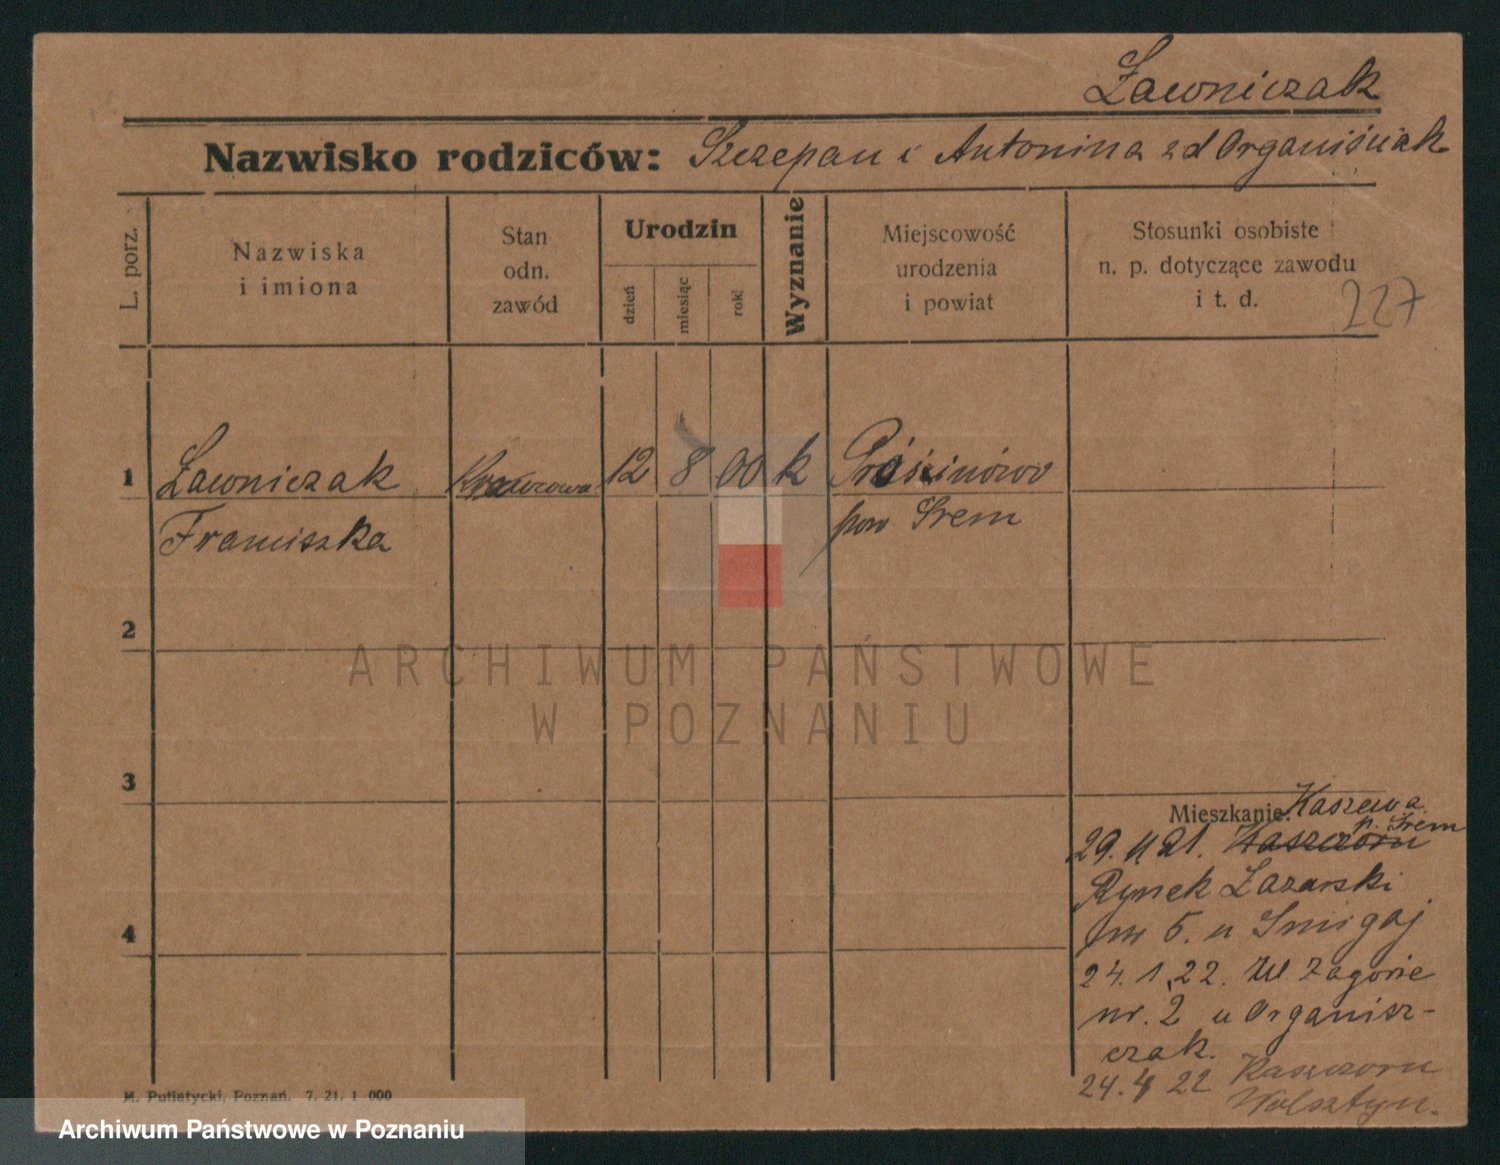 Ławniczak
Nazwisko rodziców: Szczepan i Antonina z d Organiściak
L. porz.
Nazwiska
i imiona
Stan
odn.
zawód
Urodzin
dzień
miesiąc
rok
Wyznanie
Miejscowość
urodzenia
i powiat
Stosunki osobiste
n. p. dotyczące zawodu
i t. d.
227
1 Ławniczak Krawcowa 12 8 00 k
Franciszka pow Śrem
2
ARCHIWUM PAŃSTWOWE
W POZNANIU
3
Mieszkanie: Kaszewa
p. Śrem
29. 11 21. Kaszczoru
Rynek Łazarski
nr 5. u Śmigaj
24. 1. 22. Ul Zagórze
nr. 2 u Organisz-
czak.
24. 4 22 Kaszczoru
Wolsztyn.
4
M. Putiatycki, Poznań. 7. 21. 1 000
Archiwum Państwowe w Poznaniu